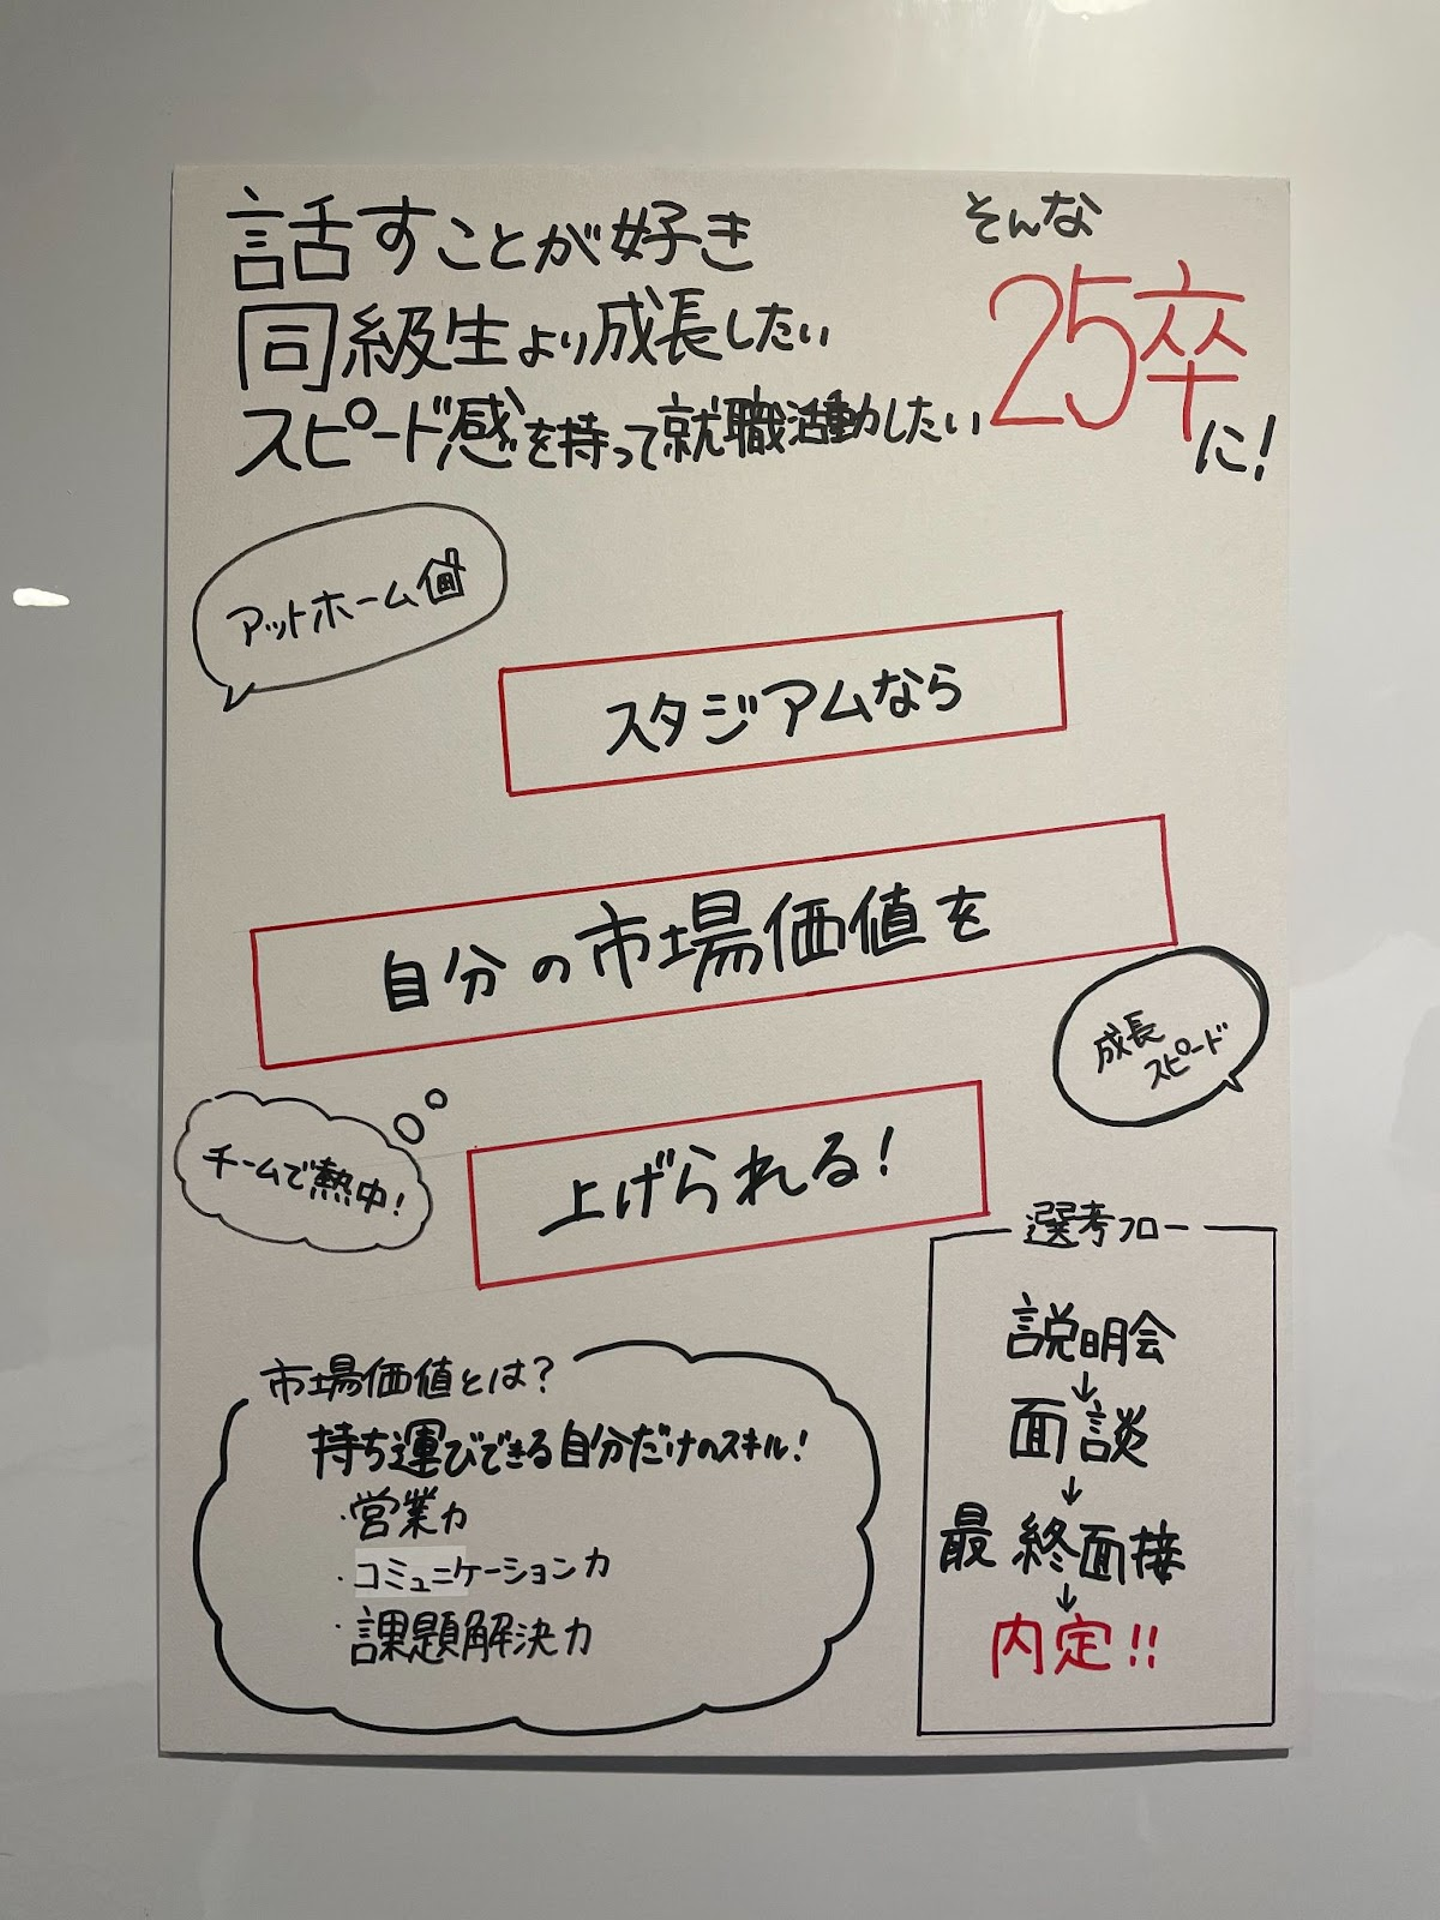 話すことが好き
同級生より成長したい
スピード感を持って就職活動したい
そんな
25卒
に!
アットホーム
スタジアムなら
自分の市場価値を
成長
スピード
チームで熱中!
上げられる!
市場価値とは?
持ち運びできる自分だけのスキル!
・営業力
・コミュニケーション力
・課題解決力
選考フロー
説明会
↓
面談
↓
最終面接
↓
内定!!